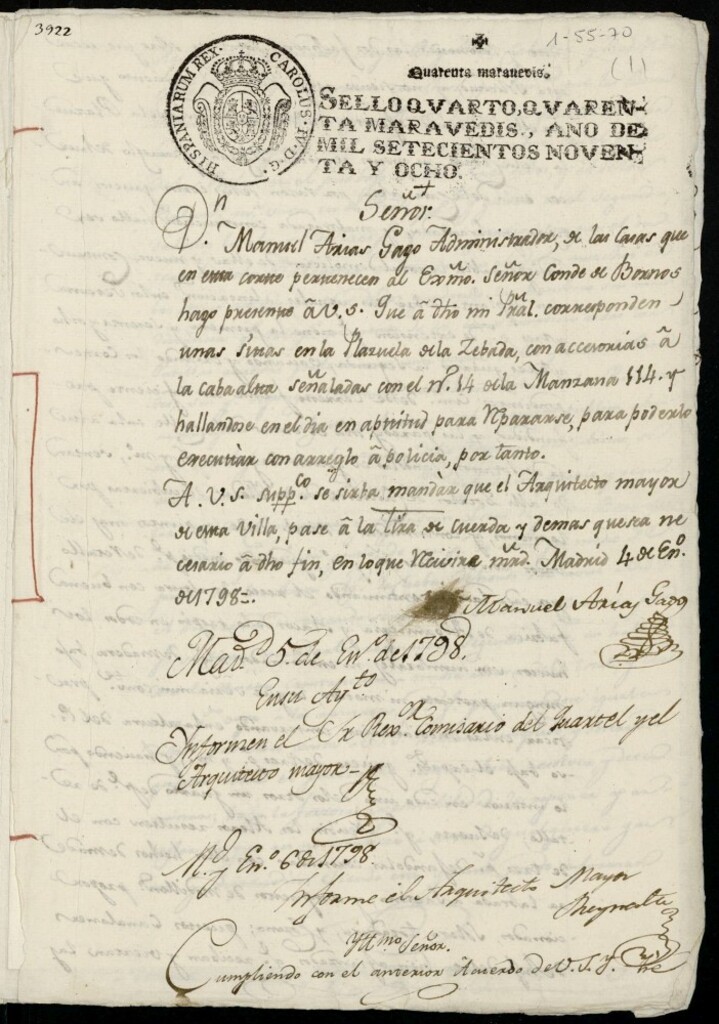 3922
1-55-70
(1)
HISPANIARUM REX. CAROLUS. IV. D. G.
Quarenta maravedis.
SELLO QVARTO, QVAREN-
TA MARAVEDIS, AÑO DE
MIL SETECIENTOS NOVEN-
TA Y OCHO.
Señor.
Dn. Manuel Arias Gago Administrador, de las Casas que
en esta corte pertenecen al Exmo. Señor Conde de Bornos
hago presente â V.S. Que â dho mi Pral. corresponden
unas sitas en la Plazuela de la Zebada, con accesorias â
la caba alta señaladas con el nº. 14 de la Manzana 114. y
hallandose en el dia en aptitud para Repararse, para poderlo
executar con arreglo â policia, por tanto.
A. V. S. suppco. se sirba mandar que el Arquitecto mayor
de esta Villa, pase â la tira de cuerda y demas que sea ne
cesario â dho fin, en lo que Recivira mrd. Madrid 4 de Eno.
de 1798=.
Manuel Arias Gago
Madd. 5. de Eno. de 1798.
En su Ayto
Informen el Sr Rexor. Comisario del Quartel y el
Arquitecto mayor
Md. y Eno. 6 de 1798.
Informe el Arquitecto Mayor
Reynalte
Yttmo Señor.
Cumpliendo con el anterior Acuerdo de V. S. Y.